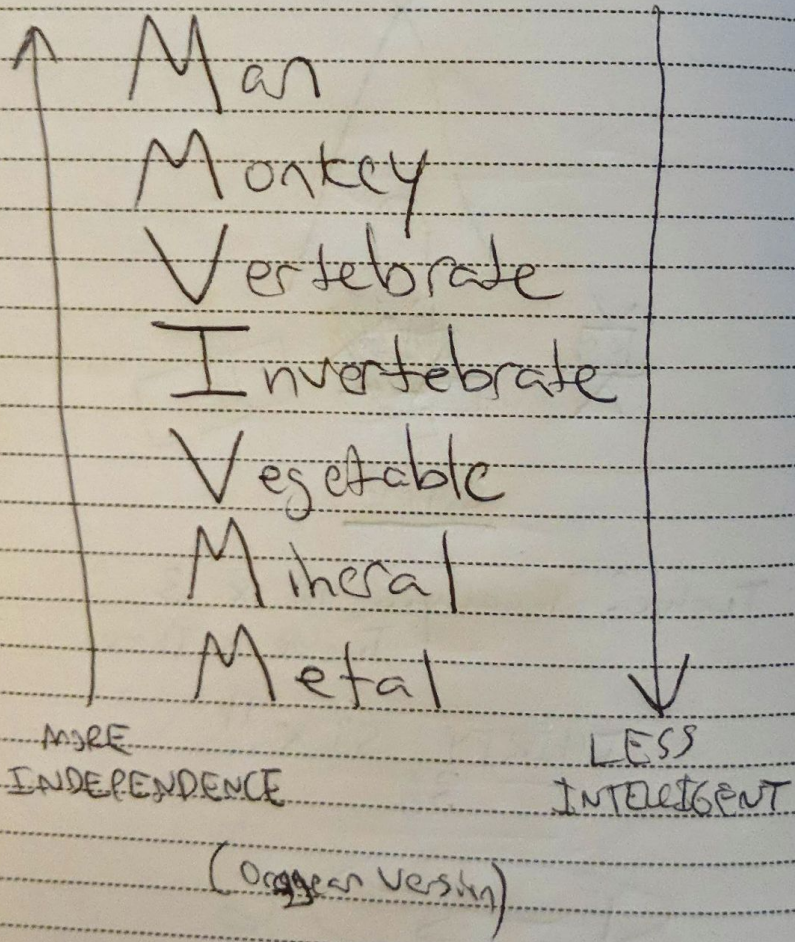 Man
Monkey
Vertebrate
Invertebrate
Vegetable
Mineral
Metal
MORE
INDEPENDENCE
LESS
INTELLIGENT
Version)